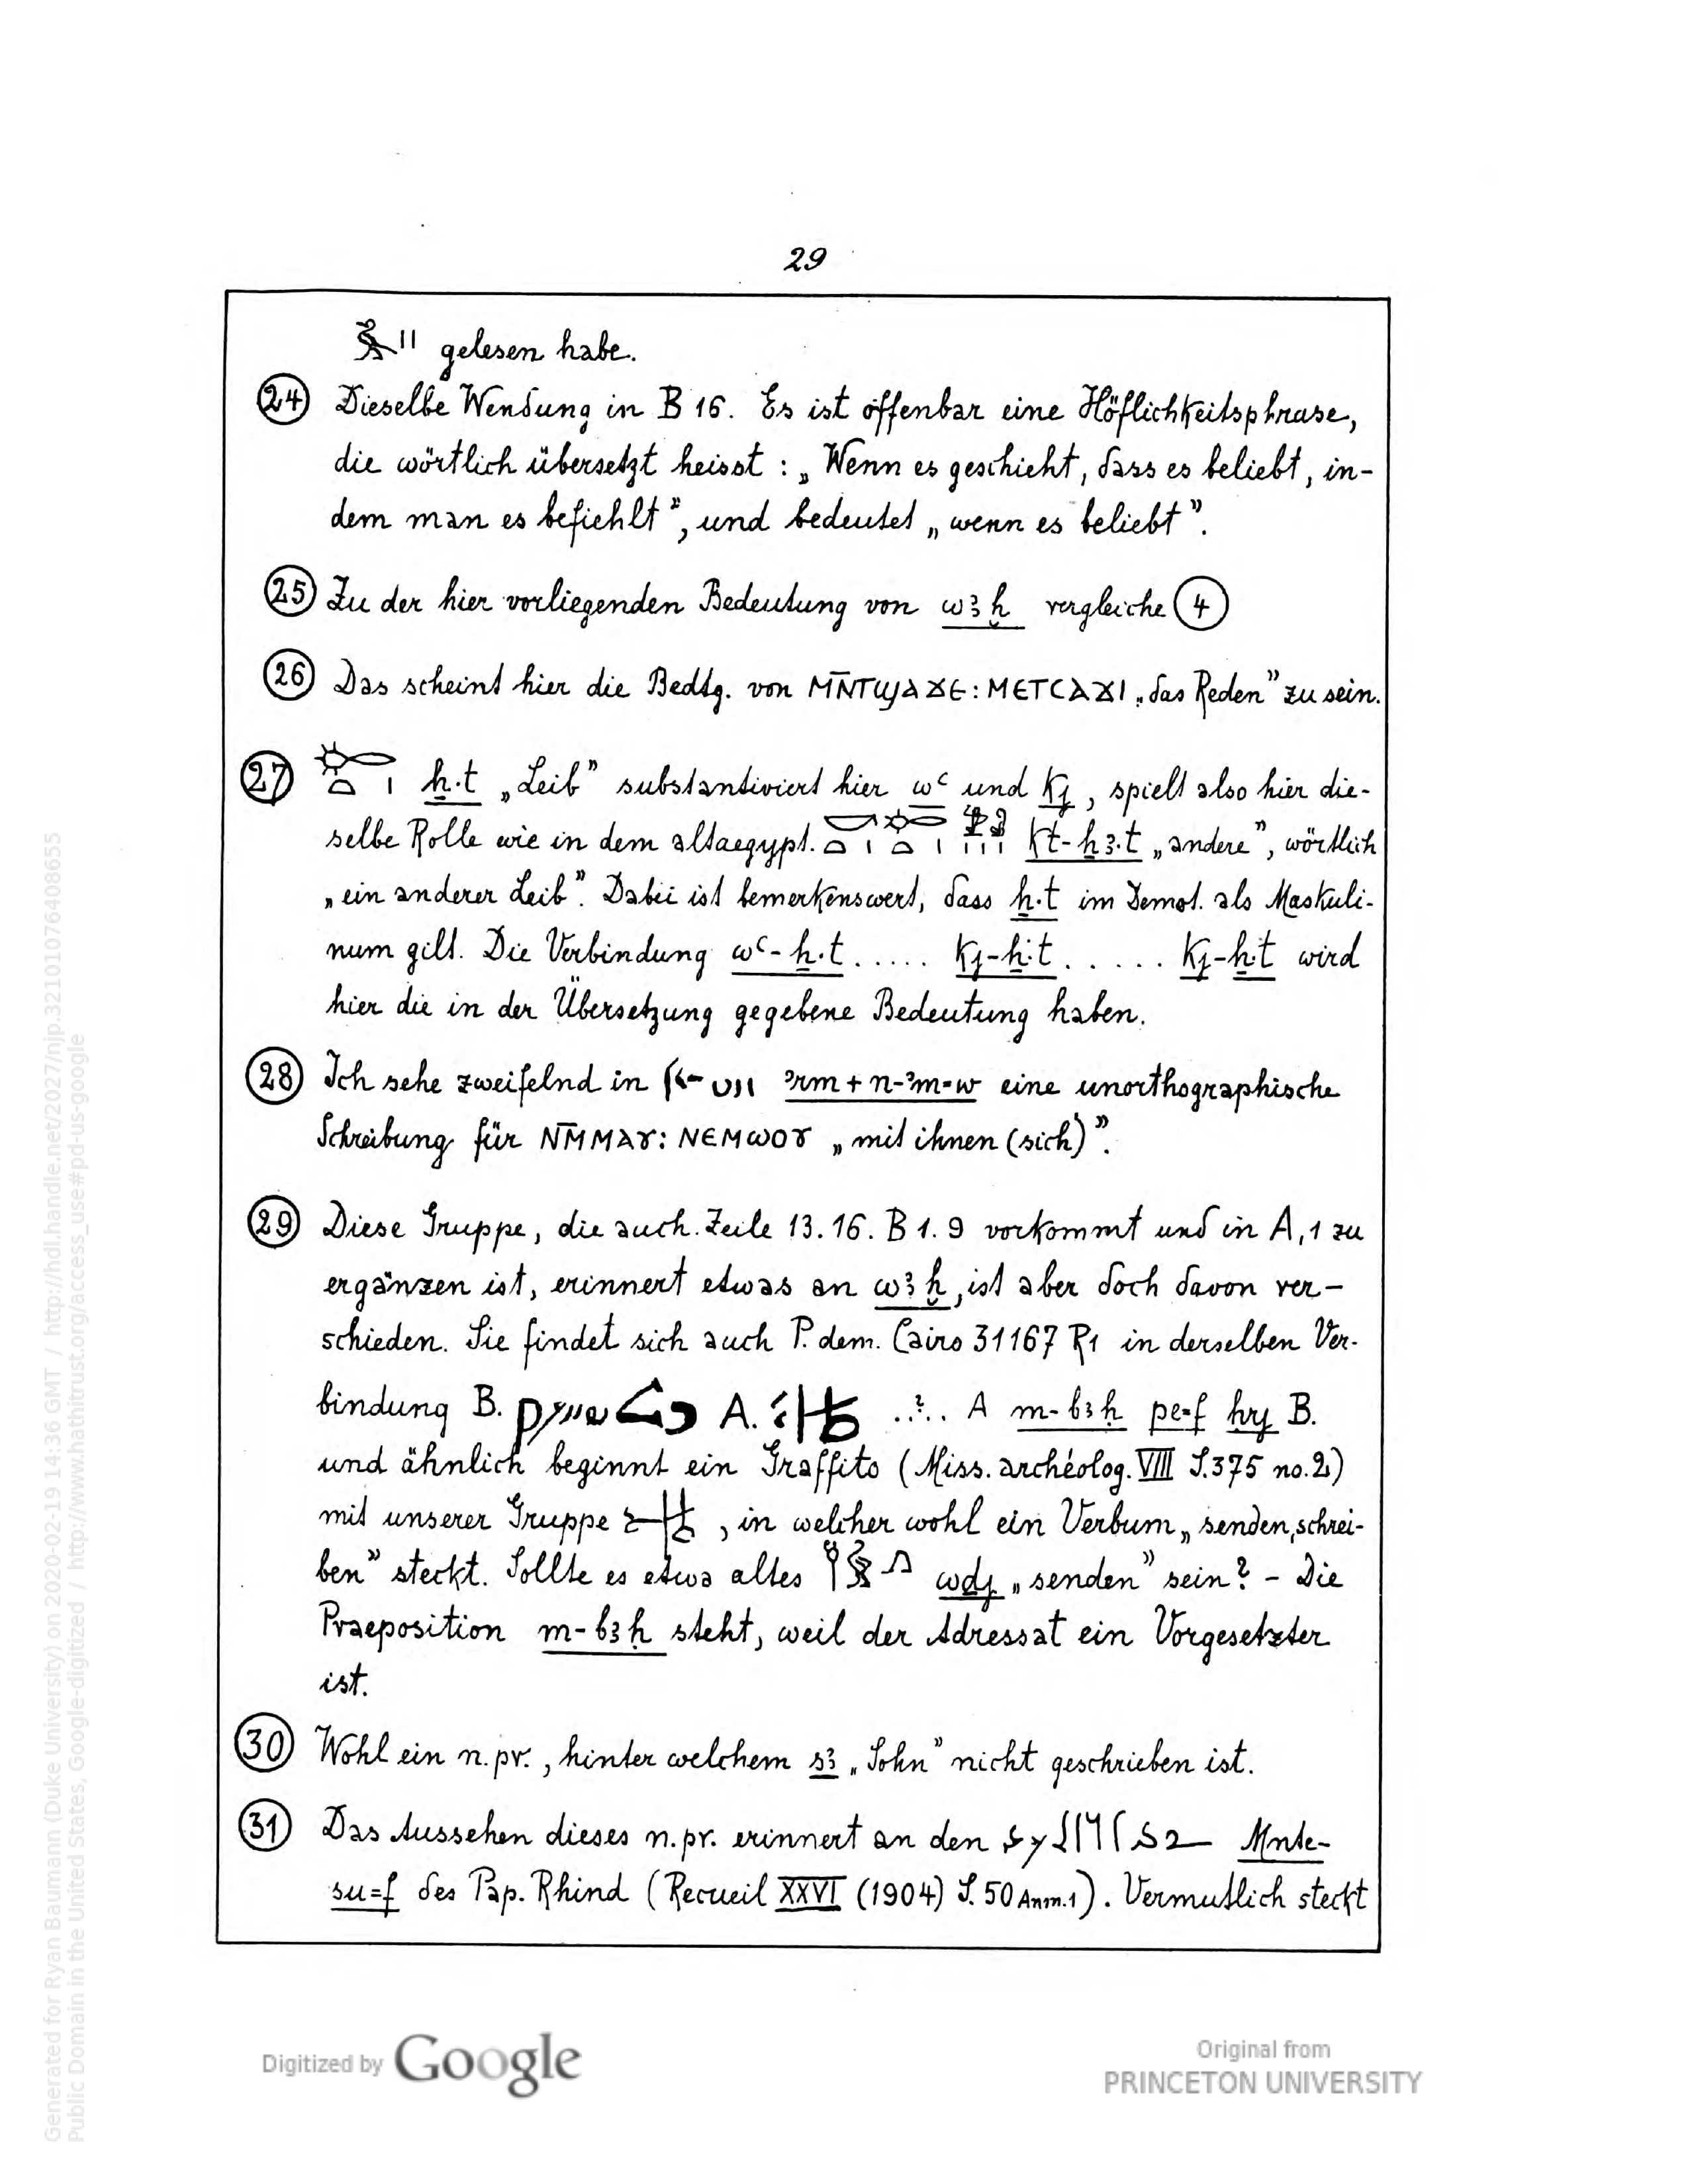 29
gelesen habe.
24 Dieselbe Wendung in B 16. Es ist offenbar eine Höflichkeitsphrase,
die wörtlich übersetzt heisst : „Wenn es geschieht, dass es beliebt, in-
dem man es befiehlt”, und bedeutet „wenn es beliebt”.
25 Zu der hier vorliegenden Bedeutung von wꜣḫ vergleiche 4
26 Das scheint hier die Bedtg. von ⲘⲚ̄ⲦϢⲀϪⲈ : ⲘⲈⲦⲤⲀϪⲒ „das Reden” zu sein.
27 ẖ·t „Leib” substantiviert hier wꜥ und kj, spielt also hier die-
selbe Rolle wie in dem altaegypt. kt-ẖꜣ·t „andere”, wörtlich
„ein anderer Leib”. Dabei ist bemerkenswert, dass ẖ·t im Demot. als Maskuli-
num gilt. Die Verbindung wꜥ-ẖ·t ..... kj-ẖ·t ..... kj-ẖ·t wird
hier die in der Übersetzung gegebene Bedeutung haben.
28 Ich sehe zweifelnd in ꜣrm + n-ꜣm=w eine unorthographische
Schreibung für ⲚⲘ̄ⲘⲀⲨ : ⲚⲈⲘⲰⲞⲨ „mit ihnen (sich)”.
29 Diese Gruppe, die auch Zeile 13. 16. B 1. 9 vorkommt und in A, 1 zu
ergänzen ist, erinnert etwas an wꜣḫ, ist aber doch davon ver-
schieden. Sie findet sich auch P. dem. Cairo 31167 R1 in derselben Ver-
bindung B. A. ..?.. A m-bꜣḥ pe=f ḥrj B.
und ähnlich beginnt ein Graffito (Miss. archéolog. VIII S. 375 no. 2)
mit unserer Gruppe , in welcher wohl ein Verbum „senden, schrei-
ben” steckt. Sollte es etwa altes wdj „senden” sein? - Die
Praeposition m-bꜣḥ steht, weil der Adressat ein Vorgesetzter
ist.
30 Wohl ein n. pr., hinter welchem sꜣ „Sohn” nicht geschrieben ist.
31 Das Aussehen dieses n. pr. erinnert an den Mnte-
su=f des Pap. Rhind (Recueil XXVI (1904) S. 50 Anm. 1). Vermutlich steckt
Digitized by Google
Original from
PRINCETON UNIVERSITY
Generated for Ryan Baumann (Duke University) on 2020-02-19 14:36 GMT / http://hdl.handle.net/2027/njp.32101076408655
Public Domain in the United States, Google-digitized / http://www.hathitrust.org/access_use#pd-us-google